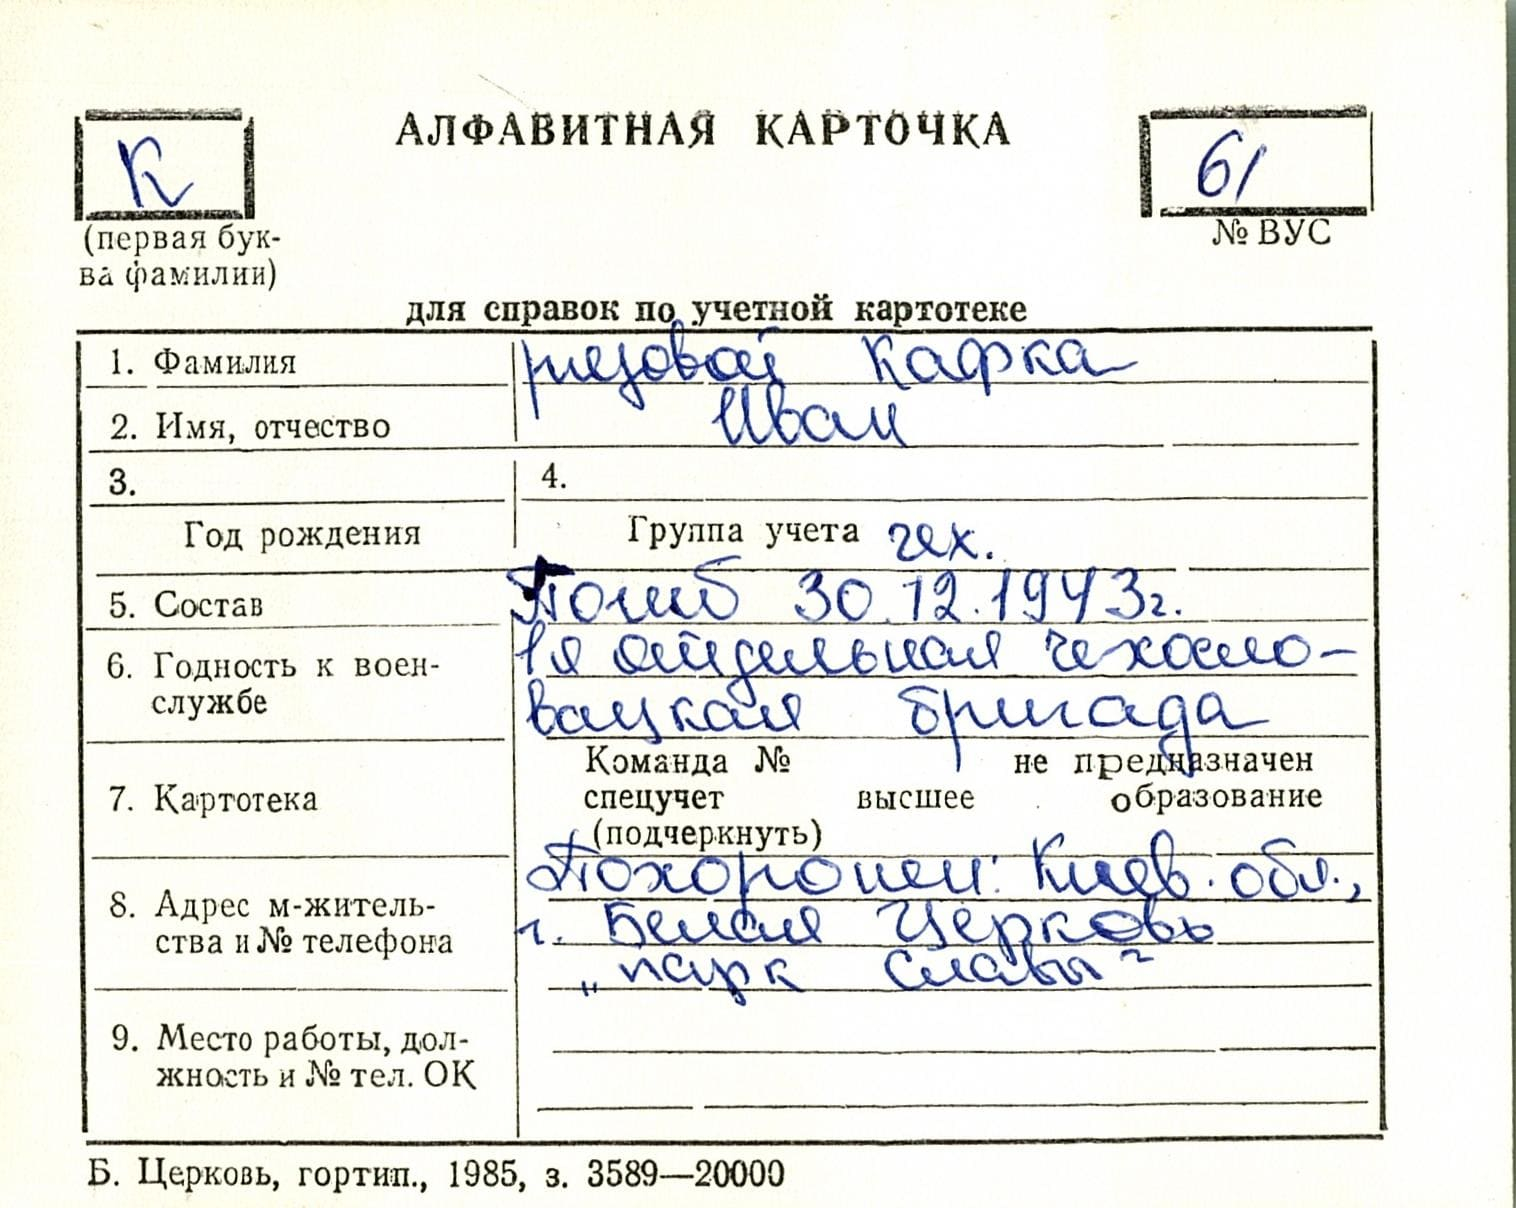 АЛФАВИТНАЯ КАРТОЧКА
К
61
(первая бук-
ва фамилии)
№ ВУС
для справок по учетной картотеке
1. Фамилия рядовой Кафка
2. Имя, отчество Иван
3. 4.
Год рождения Группа учета чех.
5. Состав Погиб 30.12.1943г.
6. Годность к воен- 1я отдельная чехосло-
службе вацкая бригада
Команда № не предназначен
7. Картотека спецучет высшее образование
(подчеркнуть)
Похоронен: Киев. обл.,
8. Адрес м-житель- г. Белая Церковь
ства и № телефона „парк Славы"
9. Место работы, дол-
жность и № тел. ОК
Б. Церковь, гортип., 1985, з. 3589—20000